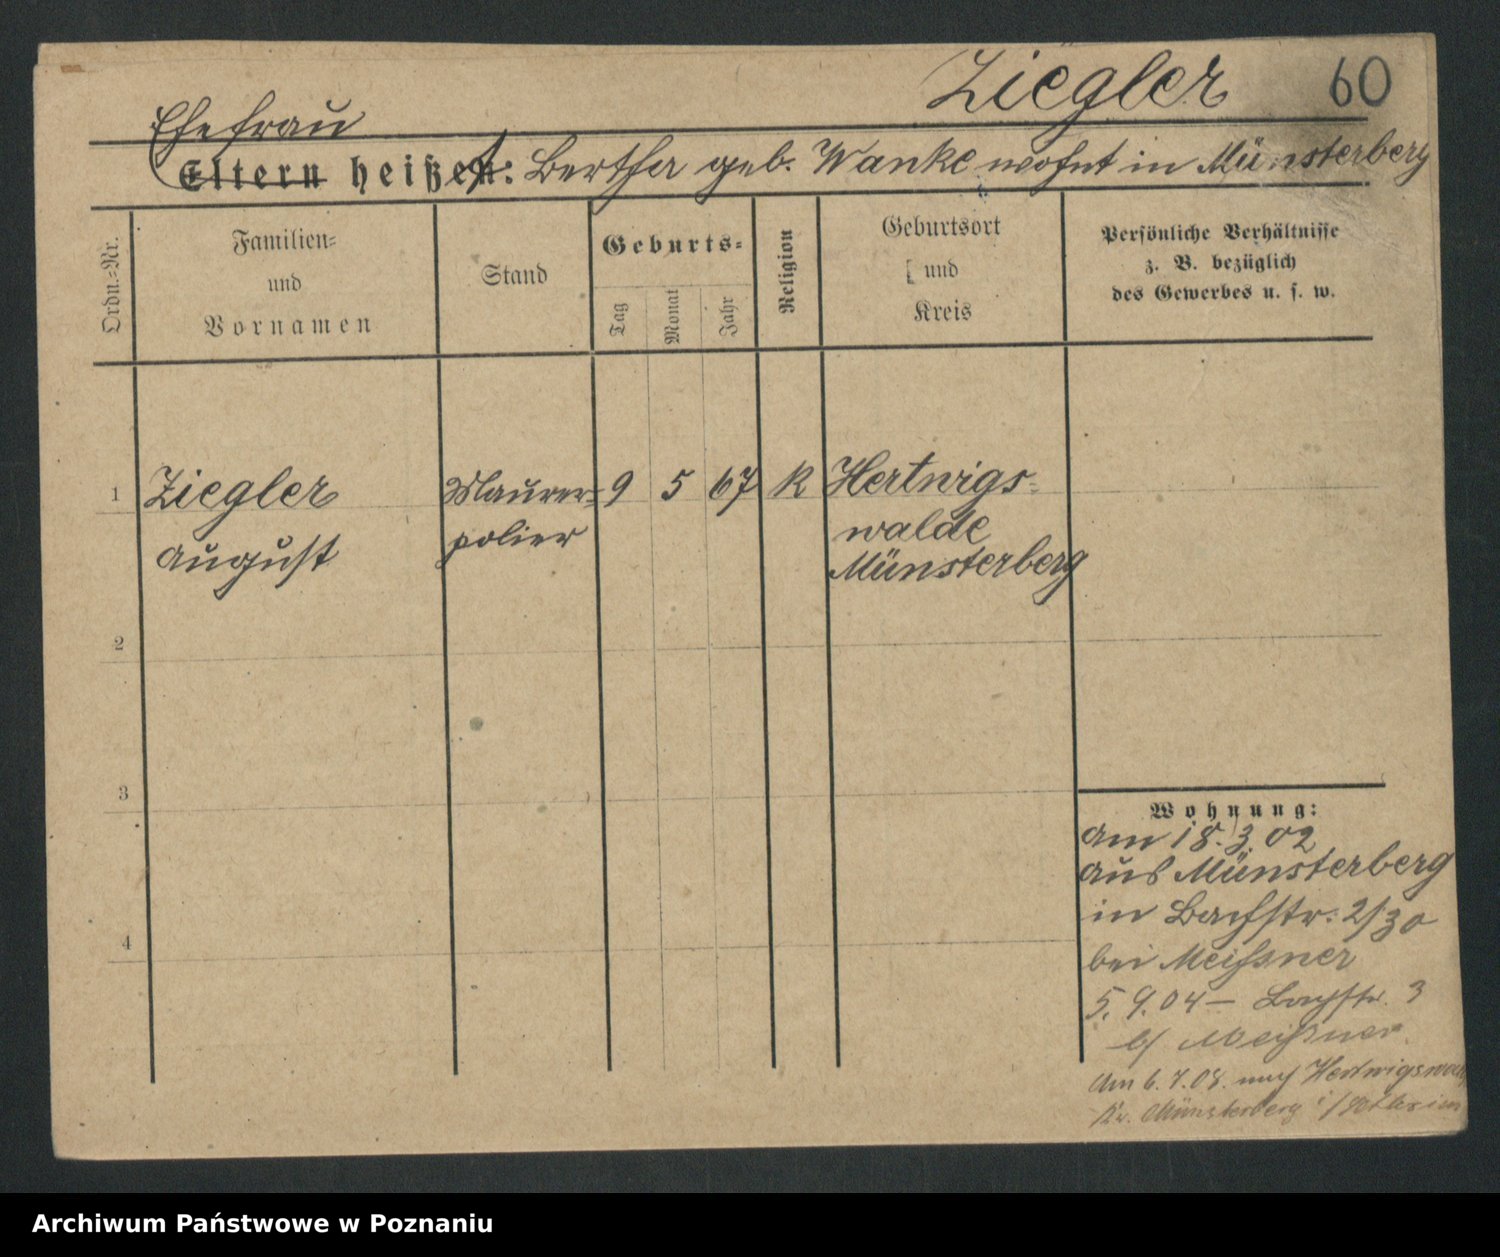 Ziegler 60
Ehefrau
Eltern heißen: Bertha geb. Wanke wohnt in Münsterberg
Ordn.=Nr.
Familien=
und
Vornamen
Stand
Geburts=
Tag
Monat
Jahr
Religion
Geburtsort
und
Kreis
Persönliche Verhältnisse
z. B. bezüglich
des Gewerbes u. s. w.
1 Ziegler Maurer= 9 5 67 K Hertwigs=
August polier walde
Münsterberg
2
3
4
Wohnung:
am 18.3.02
aus Münsterberg
in Bachstr. 2/30
bei Meißner
5.9.04 — Bachstr. 3
b/ Meißner
Am 6.7.08. nach
Kr. Münsterberg i/
Archiwum Państwowe w Poznaniu